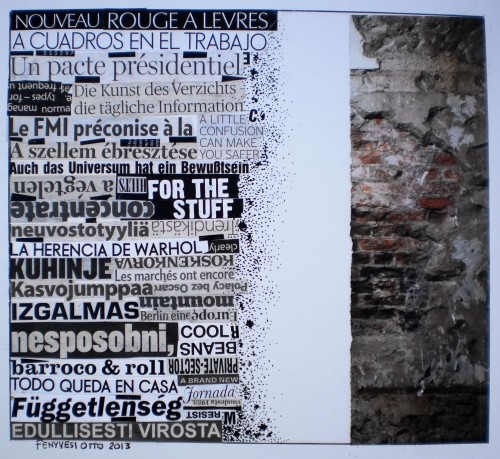 NOUVEAU ROUGE A LEVRES
A CUADROS EN EL TRABAJO
Un pacte présidentiel
Die Kunst des Verzichts
die tägliche Information
as frequent u
e types – for
Le FMI préconise à la
A LITTLE
CONFUSION
CAN MAKE
YOU SAFER
A szellem ébresztése
Auch das Universum hat ein Bewußtsein
a végtelen
FOR THE
STUFF
concentrate
neuvostotyyliä
LA HERENCIA DE WARHOL
clearly
KOSKENKORVA
KUHINJE
Les marchés ont encore
Kasvojumppaa
Polacy bez Oscara
mountain
IZGALMAS
Berlin eine
Europe
nesposobni,
COOL
BEANS
barroco & roll
PRIVATE-SECTOR
A BRAND NEW
TODO QUEDA EN CASA
Jornada
Függetlenség
RESIST
M
EDULLISESTI VIROSTA
FENYVESI OTTO 2013